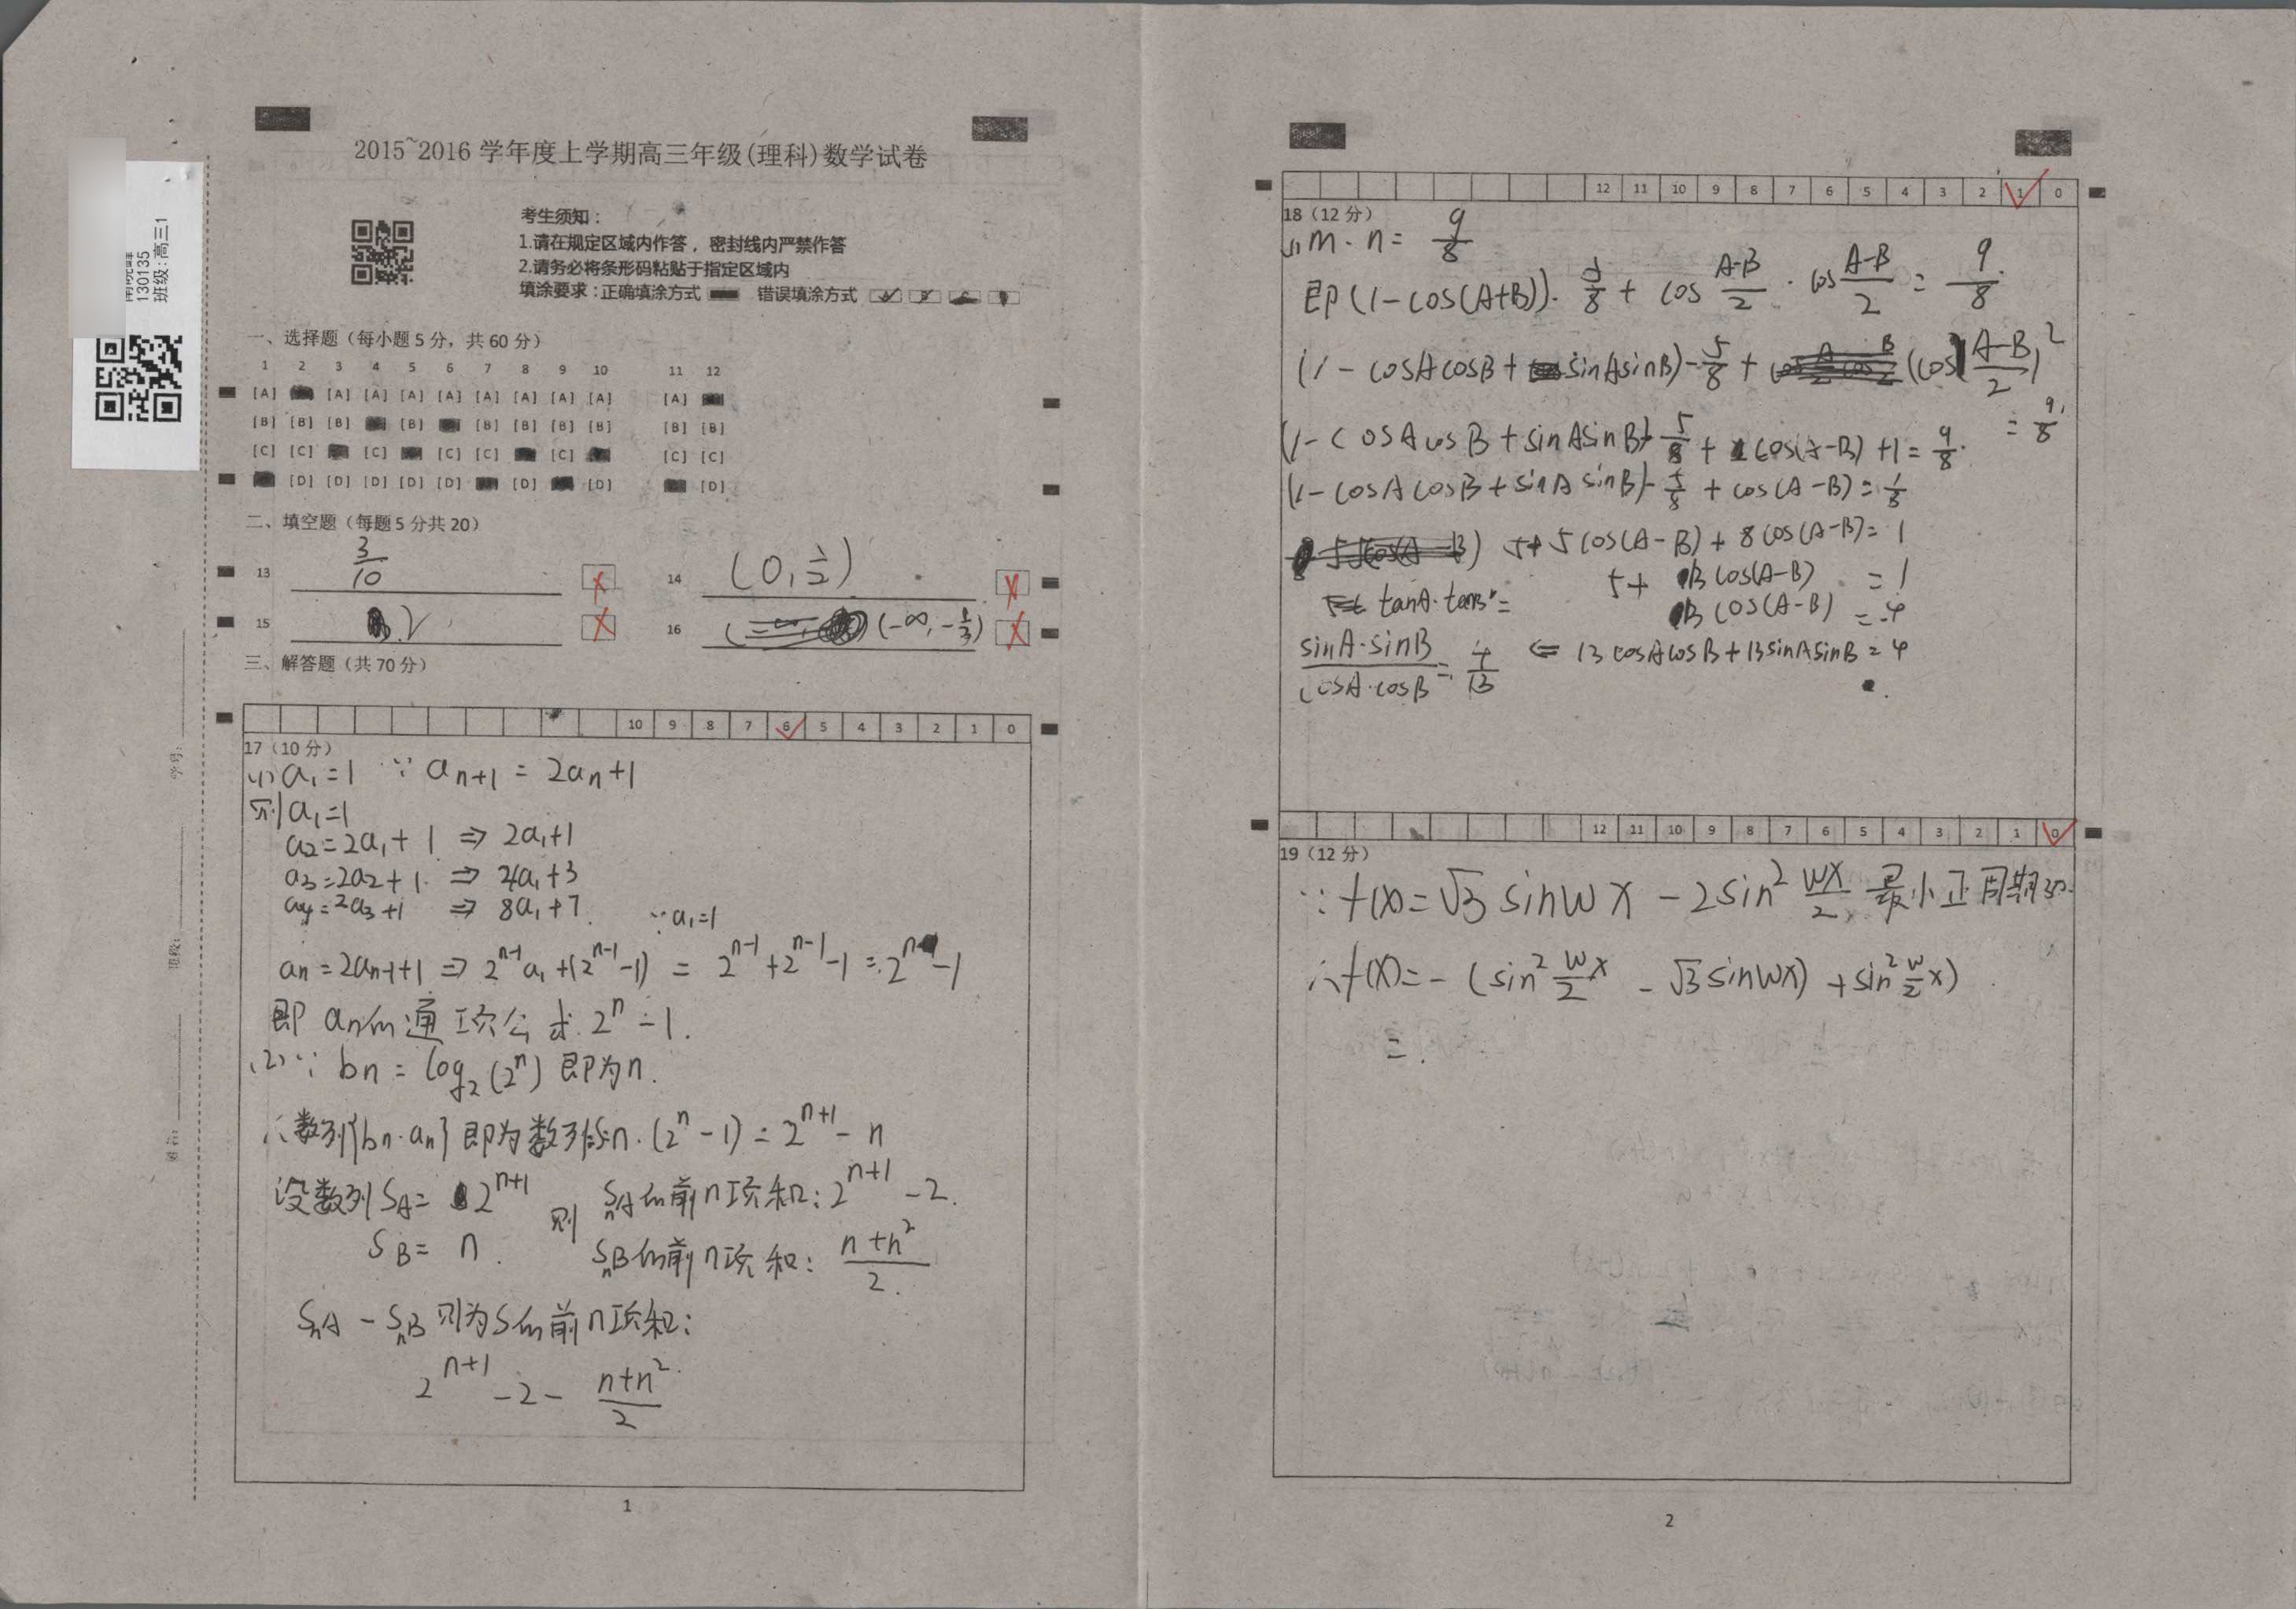 2015~2016 学年度上学期高三年级(理科)数学试卷
130135
班级:高三1
考生须知:
1.请在规定区域内作答，密封线内严禁作答
2.请务必将条形码粘贴于指定区域内
填涂要求:正确填涂方式 错误填涂方式
一、选择题（每小题5分，共60分）
1 2 3 4 5 6 7 8 9 10 11 12
[A] [A] [A] [A] [A] [A] [A] [A] [A] [A]
[B] [B] [B] [B] [B] [B] [B] [B] [B] [B]
[C] [C] [C] [C] [C] [C] [C] [C]
[D] [D] [D] [D] [D] [D] [D] [D]
二、填空题（每题5分共20）
13 3/10 14 (0, 1/2)
15 2 16 (-∞, -1/3)
三、解答题（共70分）
10 9 8 7 6 5 4 3 2 1 0
17（10分）
(1) a₁=1 ∵ aₙ₊₁ = 2aₙ+1
则a₁=1
a₂=2a₁+1 ⇒ 2a₁+1
a₃=2a₂+1 ⇒ 4a₁+3
a₄=2a₃+1 ⇒ 8a₁+7 ∵a₁=1
aₙ=2aₙ₋₁+1 ⇒ 2ⁿ⁻¹a₁+(2ⁿ⁻¹-1) = 2ⁿ⁻¹+2ⁿ⁻¹-1 = 2ⁿ-1
即 aₙ的通项公式 2ⁿ-1.
(2)∵ bₙ = log₂(2ⁿ) 即为n.
∴数列{bₙ·aₙ}即为数列S=n·(2ⁿ-1)=2ⁿ⁺¹-n
设数列S_A= 2ⁿ⁺¹ 则 SₙA的前n项和:2ⁿ⁺¹-2.
S_B= n. SₙB的前n项和: (n+n²)/2.
SₙA - SₙB 则为S的前n项和:
2ⁿ⁺¹-2- (n+n²)/2
1
学号:
班级:
姓名:
12 11 10 9 8 7 6 5 4 3 2 1 0
18（12分）
(1) m·n= 9/8
即(1-cos(A+B))· 5/8 + cos (A-B)/2 · cos (A-B)/2 = 9/8.
(1-cosAcosB+sinAsinB)-5/8 + (cos (A-B)/2)²
= 9/8
(1-cosAcosB+sinAsinB)+ 5/8 + cos(A-B)+1= 9/8.
(1-cosAcosB+sinAsinB)- 5/8 + cos(A-B)= 1/8
5+5cos(A-B)+8cos(A-B)=1
5+ 13cos(A-B) =1
tanA·tanB= 13cos(A-B) =-4
sinA·sinB/cosA·cosB = 4/13 ⇐ 13cosAcosB+13sinAsinB=4
12 11 10 9 8 7 6 5 4 3 2 1 0
19（12分）
∵f(x)=√3 sinωx - 2sin² ωx/2 最小正周期3π.
∴f(x)=-(sin² ω/2 x - √3sinωx)+sin² ω/2 x)
=.
2